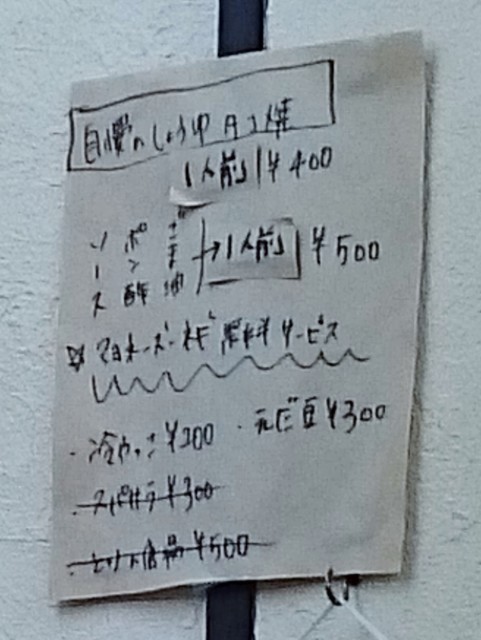 自慢のしょうゆたこ焼
1人前 ¥400
ソース
ポン酢
ごま油
→1人前 ¥500
マヨネーズ・ネギ 無料サービス
・冷やっこ ¥200 ・元だ豆 ¥300
・スパサラ ¥300
¥500